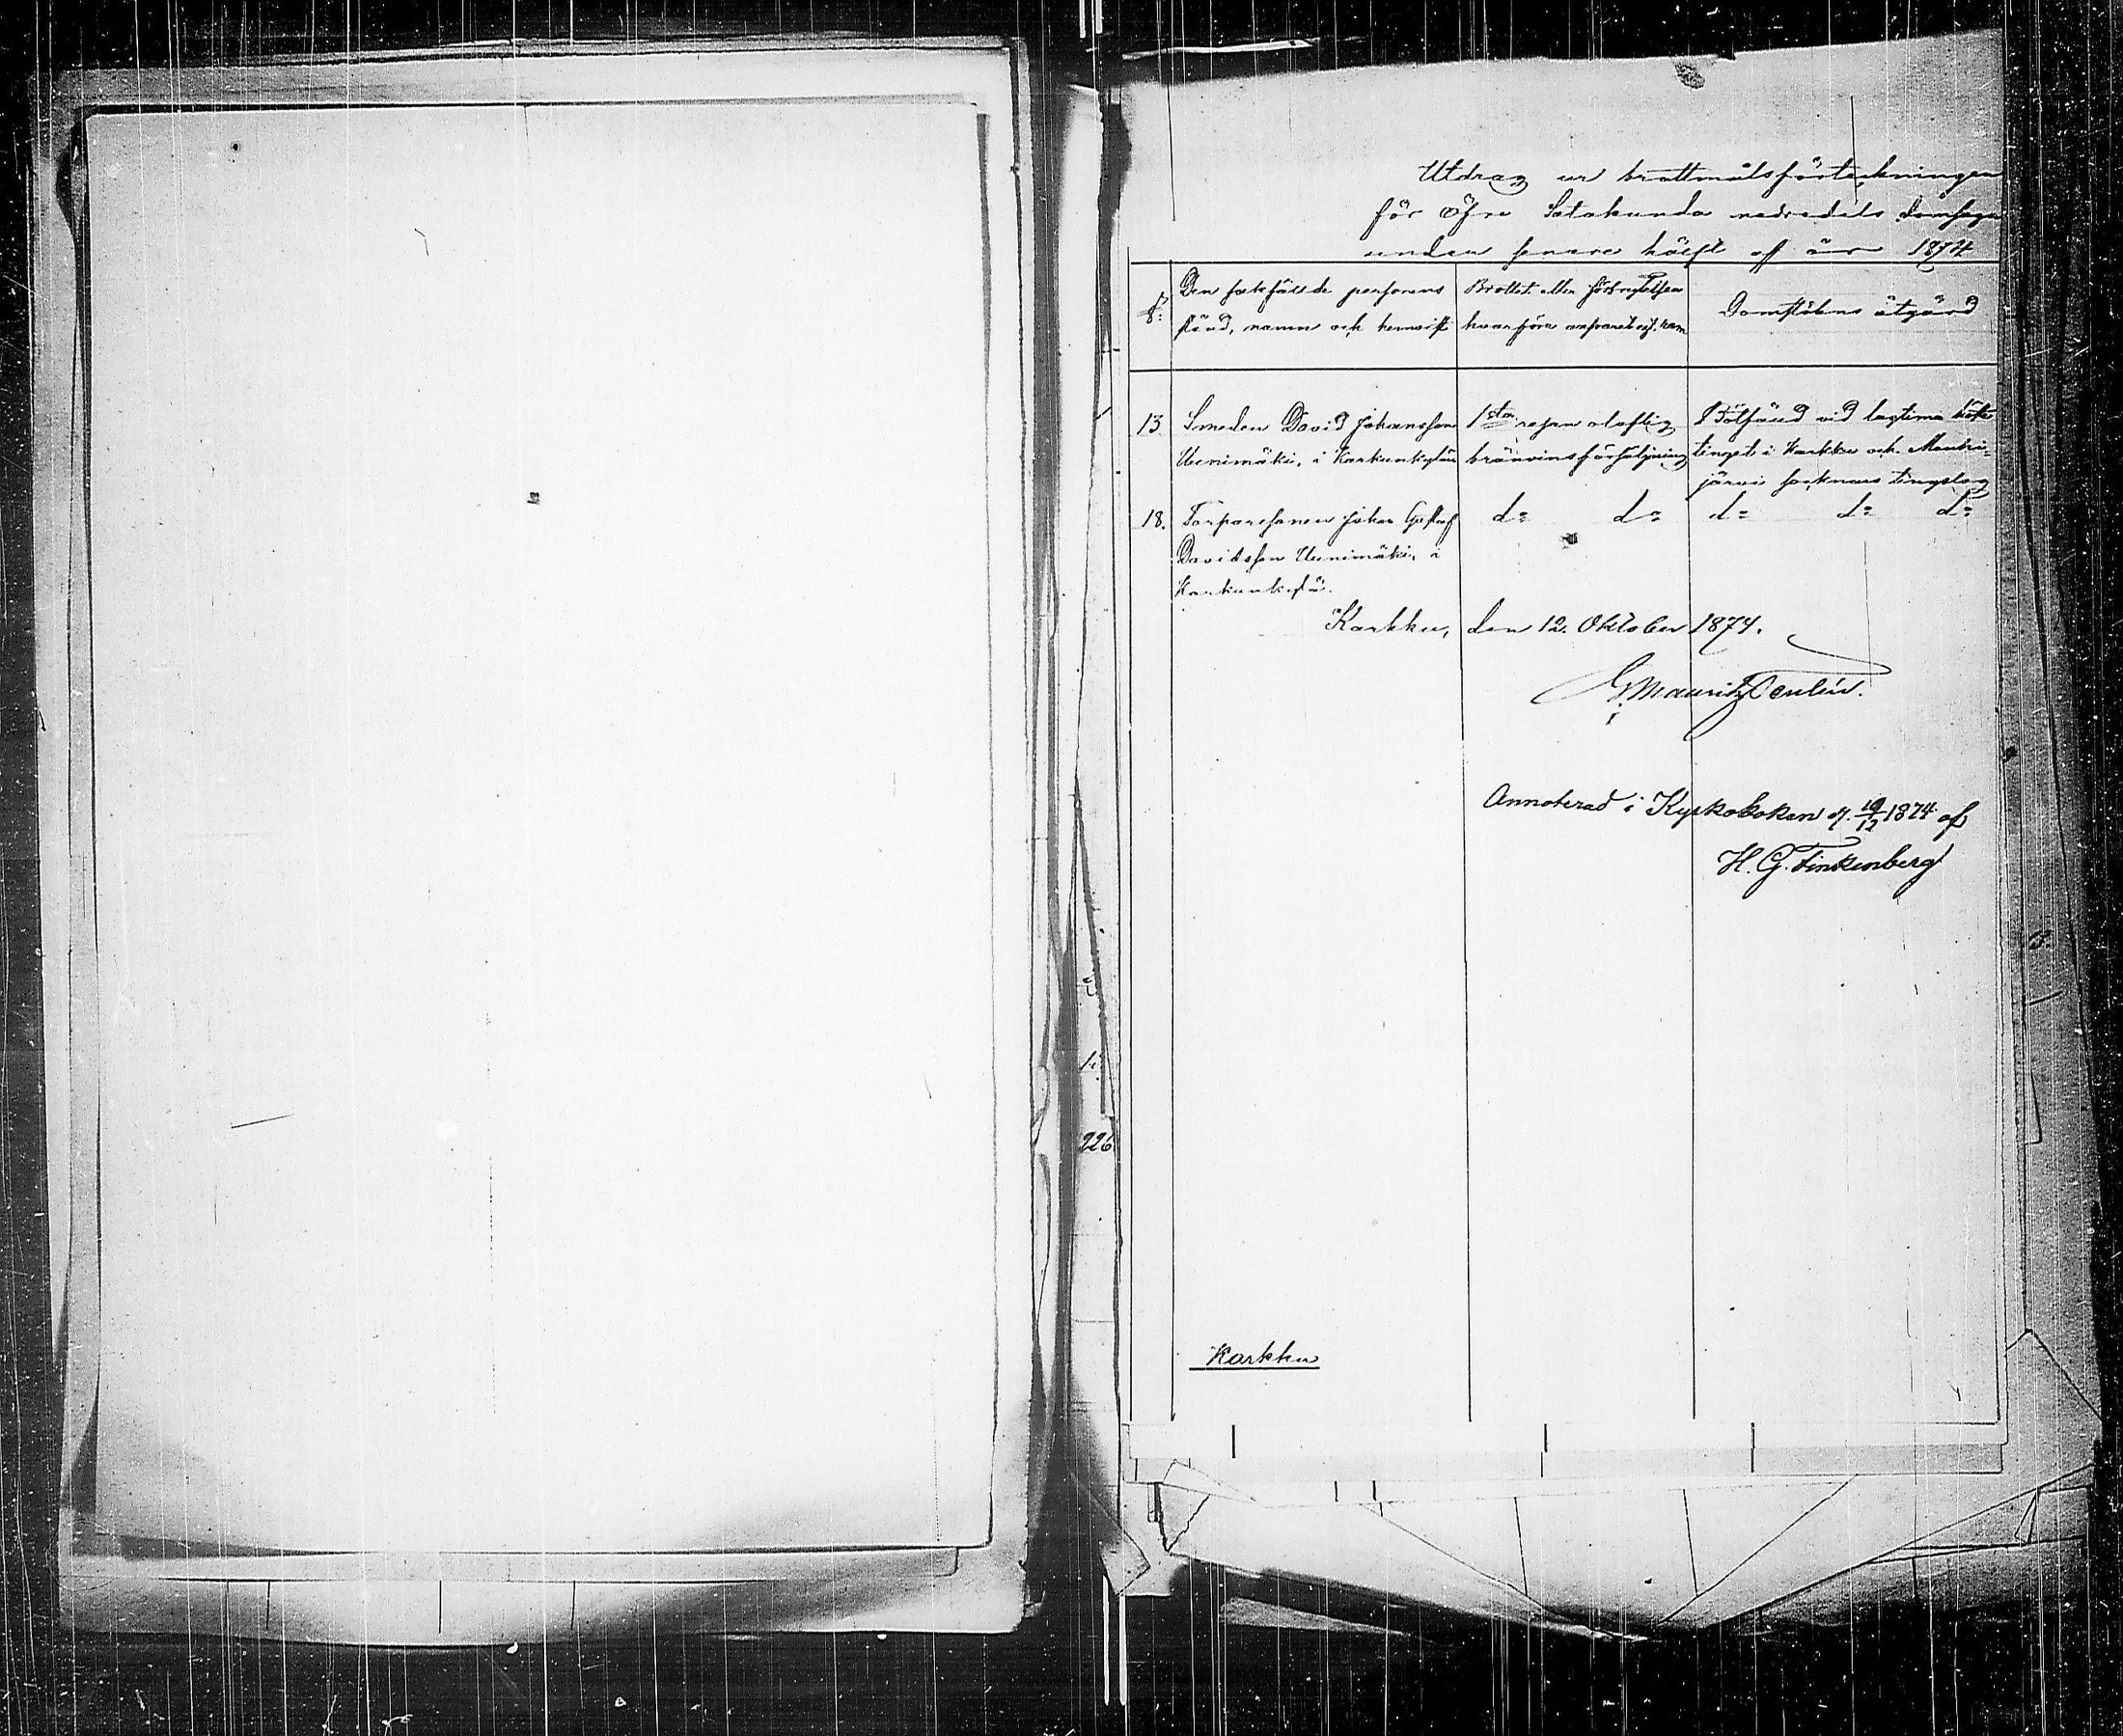 Utdrag ur brottmålsförteckningen
för Öfre Satakunda nedredels domsaga
under senare hälft af år 1874
Den sakfällde personens
stånd, namn och hemvist
Brottet eller förbrytelsen
hvarföre ansvaret
Domstolens åtgärd
13 Smeden David Johansson
Uunimäki, i Karkunkylä
1sta resan olaflig
bränvinsförsäljning
Botfäld vid lagtima höste
tinget i Karkku och Mouhi-
järvi socknars tingslag
18. Torparesonen Johan Gustaf
Davidsson Uunimäki, i
Karkunkylä.
d:o d:o d:o d:o d:o
Karkku, den 12. Oktober 1874.
G. Mauritz
Annoterad i Kyrkoboken d. 19/12 1874 af
H. G. Finkenberg
Karkku
226